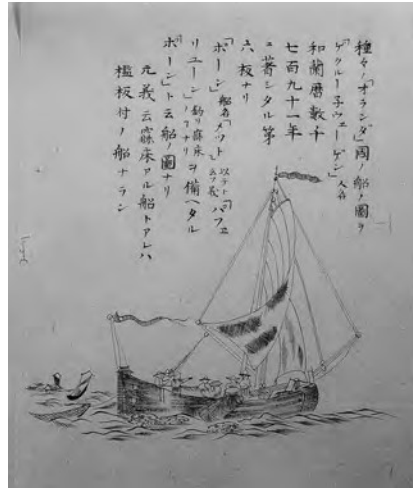 種々ノ「オランダ」國ノ船ノ圖ヲ
「ゲクルー子ウェーゲン」人名
和蘭暦数千
七百九十一年
ニ著シタル第
六板ナリ
「ホーン」船名「メット」以テト云フ義「パフェ
リユーン」釣リ寐床ノコナリ ヲ備ヘタル
「ホーン」ト云船ノ圖ナリ
元義云寐床アル船トアレハ
檻板付ノ船ナラン